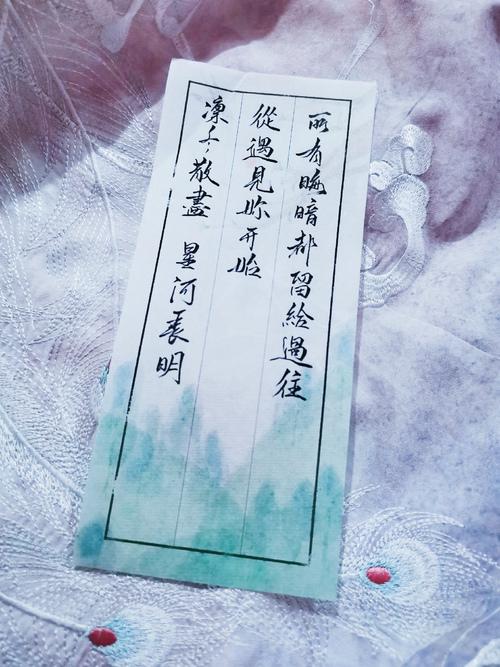 所有晦暗都留給過往
從遇見妳开始
凛冬散盡 星河長明